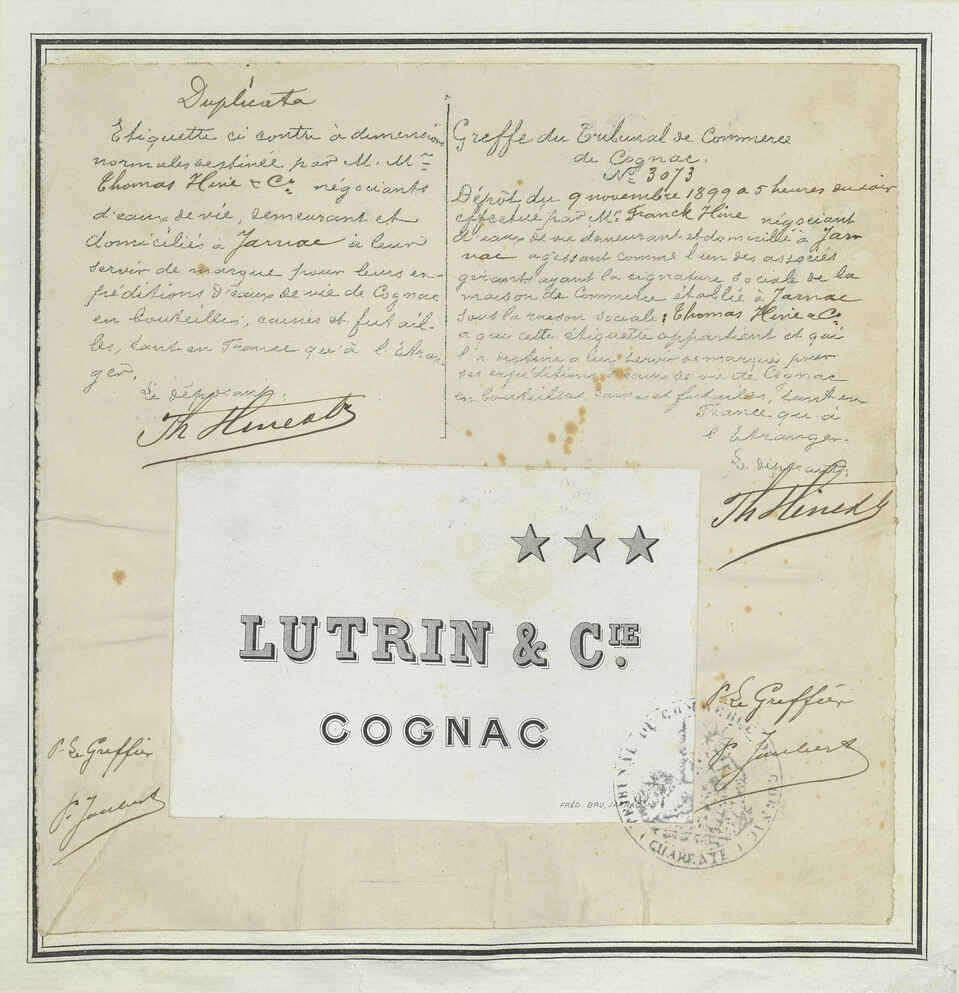 Duplicata
Etiquette ci contre à dimensions
normales destinée par M. Mrs
Thomas Hine & Co négociants
d'eaux de vie, demeurant et
domiciliés à Jarnac à leur
servir de marque pour leurs ex-
péditions d'eaux de vie de Cognac
en bouteilles, caisses et futail-
les, tant en France qu'à l'Etran-
ger.
Le déposant:
Th Hine & Co
Greffe du Tribunal de Commerce
de Cognac.
No 3073
Dépôt du 9 novembre 1899 à 5 heures du soir
effectué par Mr Franck Hine négociant
d'eaux de vie demeurant et domicilié à Jar-
nac agissant comme l'un des associés
gérants ayant la signature sociale de la
maison de Commerce établie à Jarnac
sous la raison sociale: Thomas Hine & Co
à qui cette étiquette appartient et qui
l'a destine à lui servir de marque pour
ses expéditions d'eaux de vie de Cognac
en bouteilles, caisses et futailles, tant en
France qu'à
l'Etranger.
Le déposant:
Th Hine & Co
★★★
LUTRIN & CIE.
COGNAC
FRÉD. BRU, JARNAC
P. Le Greffier
P. Joubert
P. Le Greffier
P. Joubert
TRIBUNAL DE COMMERCE DE COGNAC
CHARENTE